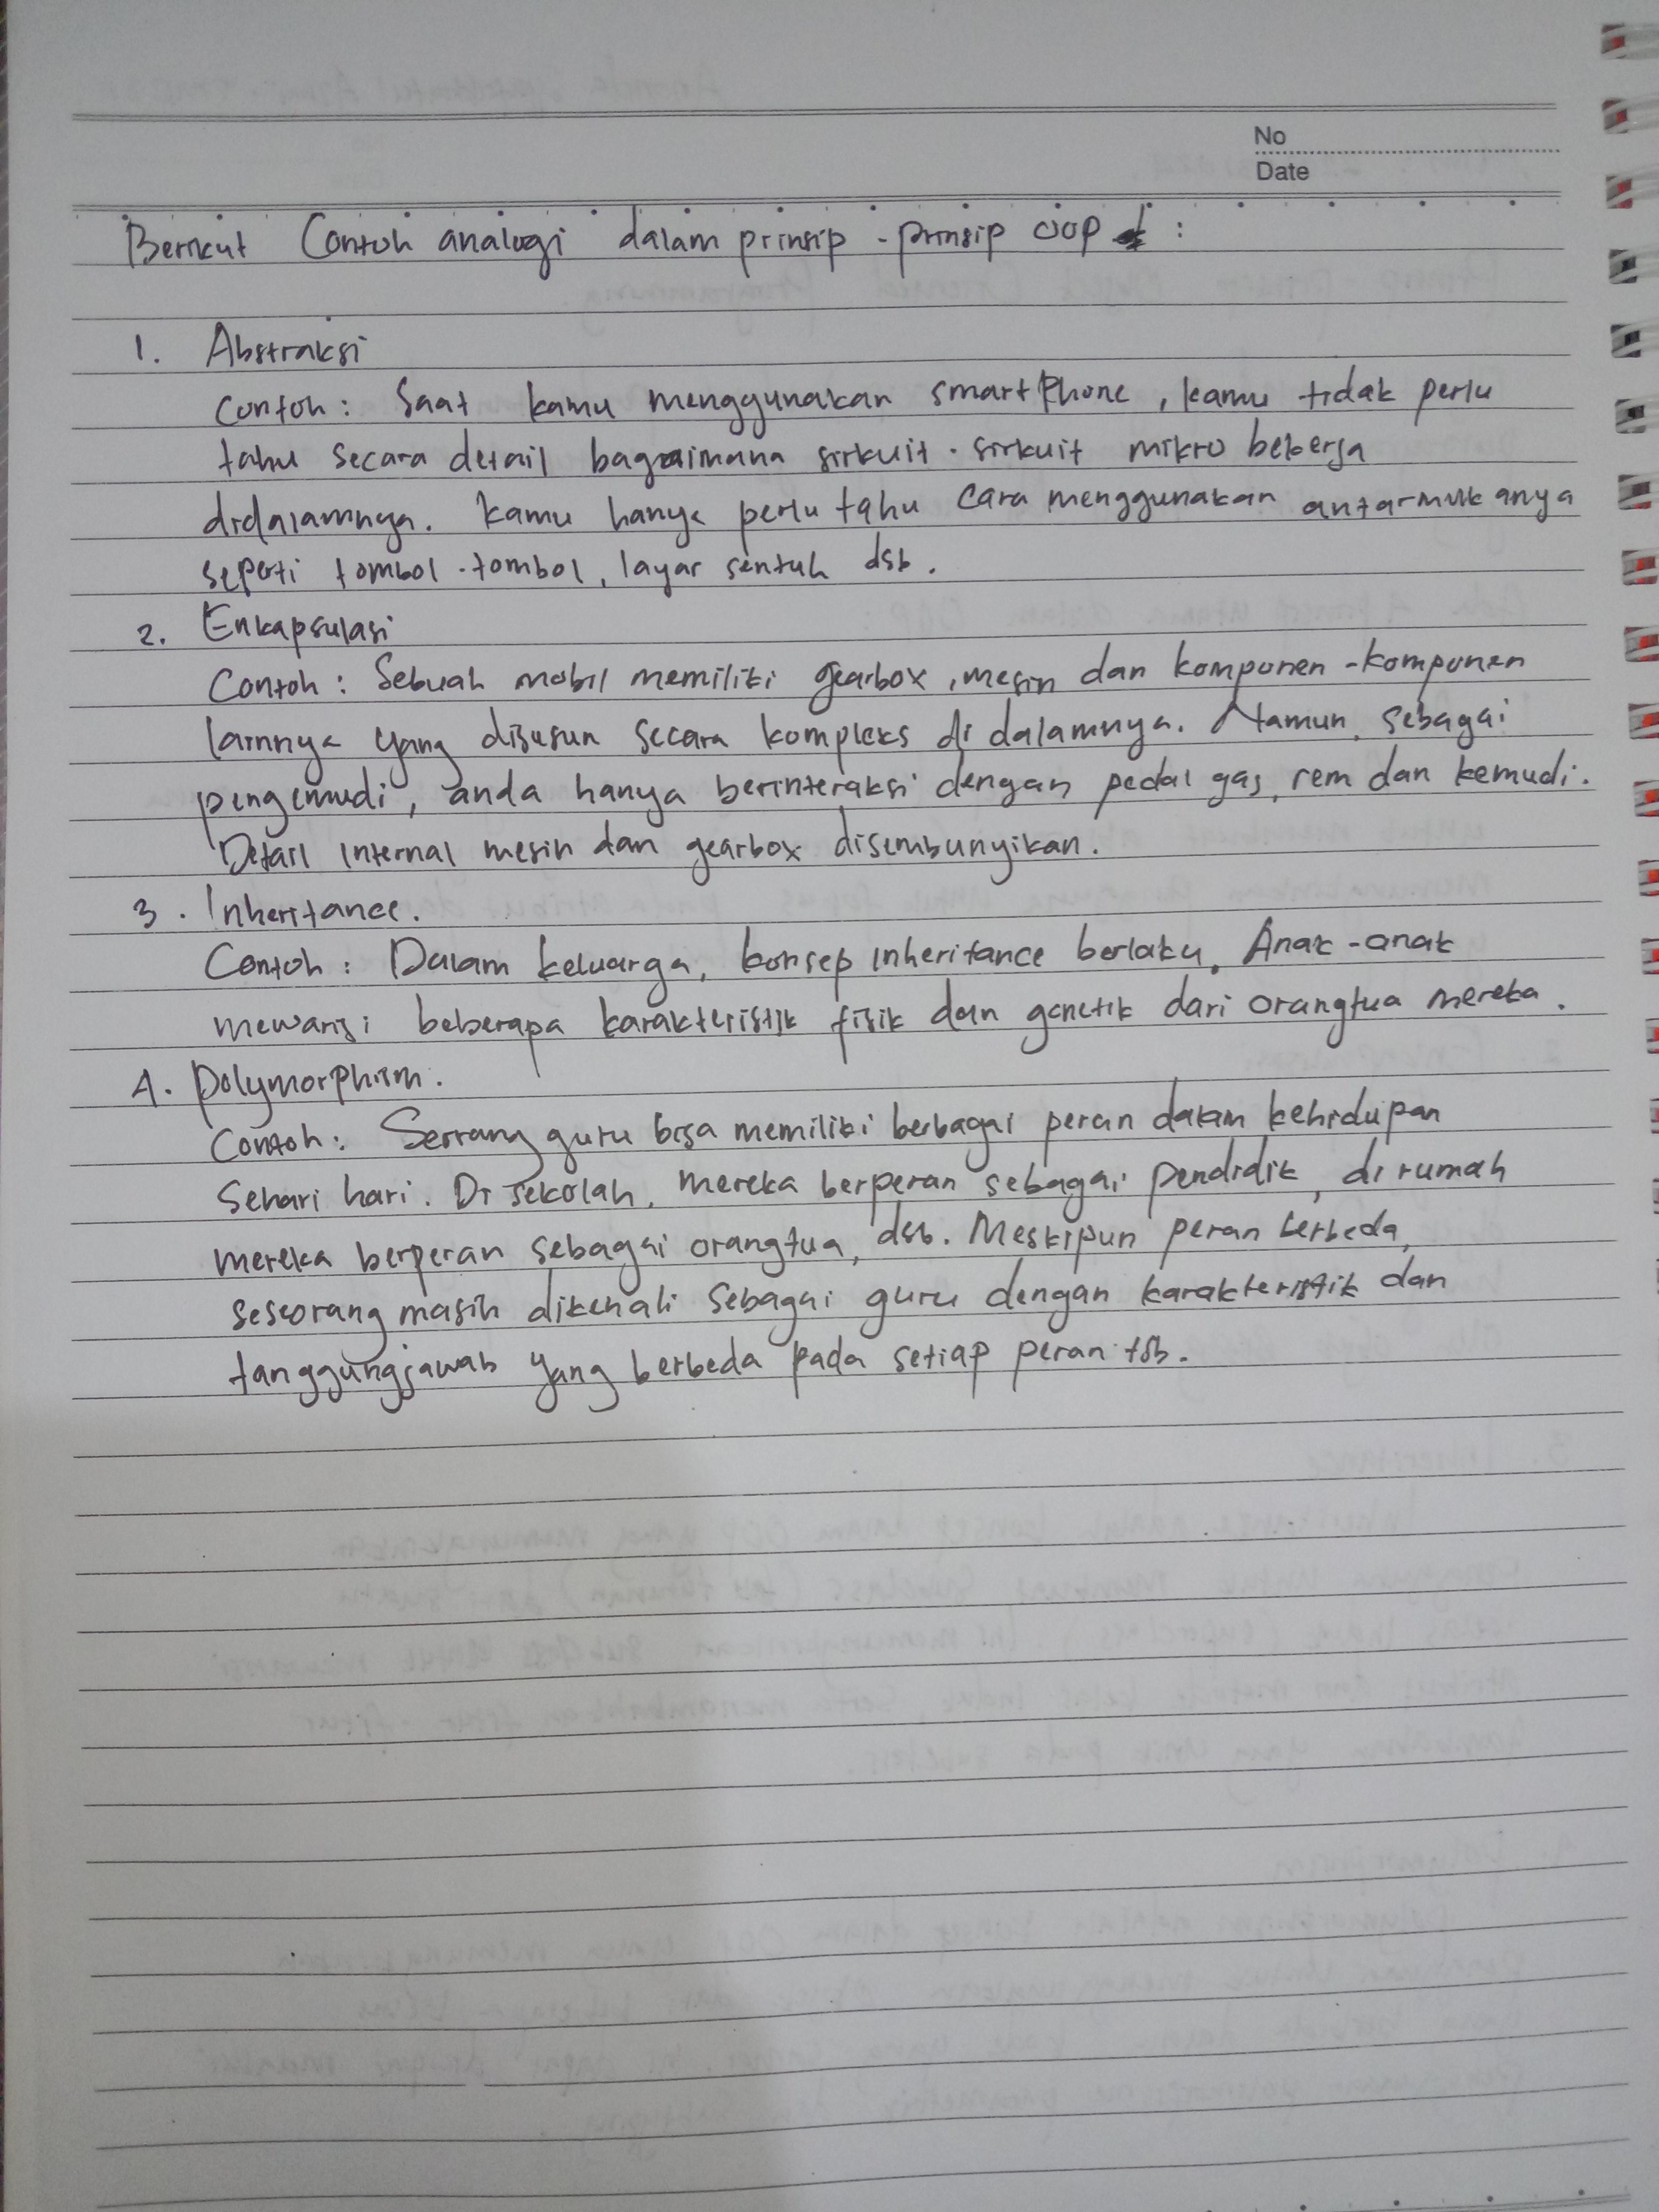 No
Date
Berikut Contoh analogi dalam prinsip - prinsip OOP :
1. Abstraksi
Contoh : Saat kamu menggunakan smartPhone , kamu tidak perlu
tahu secara detail bagaimana sirkuit - sirkuit mikro bekerja
didalamnya. Kamu hanya perlu tahu cara menggunakan antarmukanya
seperti tombol - tombol, layar sentuh dsb.
2. Enkapsulasi
Contoh : Sebuah mobil memiliki gearbox , mesin dan komponen - komponen
lainnya yang disusun secara kompleks di dalamnya. Namun, sebagai
pengemudi, anda hanya berinteraksi dengan pedal gas, rem dan kemudi.
Detail internal mesin dan gearbox disembunyikan.
3. Inheritance.
Contoh : Dalam keluarga, konsep inheritance berlaku. Anak - anak
mewarisi beberapa karakteristik fisik dan genetik dari orangtua mereka.
4. Polymorphism.
Contoh : Seorang guru bisa memiliki berbagai peran dalam kehidupan
sehari hari. Di sekolah, mereka berperan sebagai pendidik, di rumah
mereka berperan sebagai orangtua, dsb. Meskipun peran berbeda,
seseorang masih dikenali sebagai guru dengan karakteristik dan
tanggungjawab yang berbeda pada setiap peran tsb.